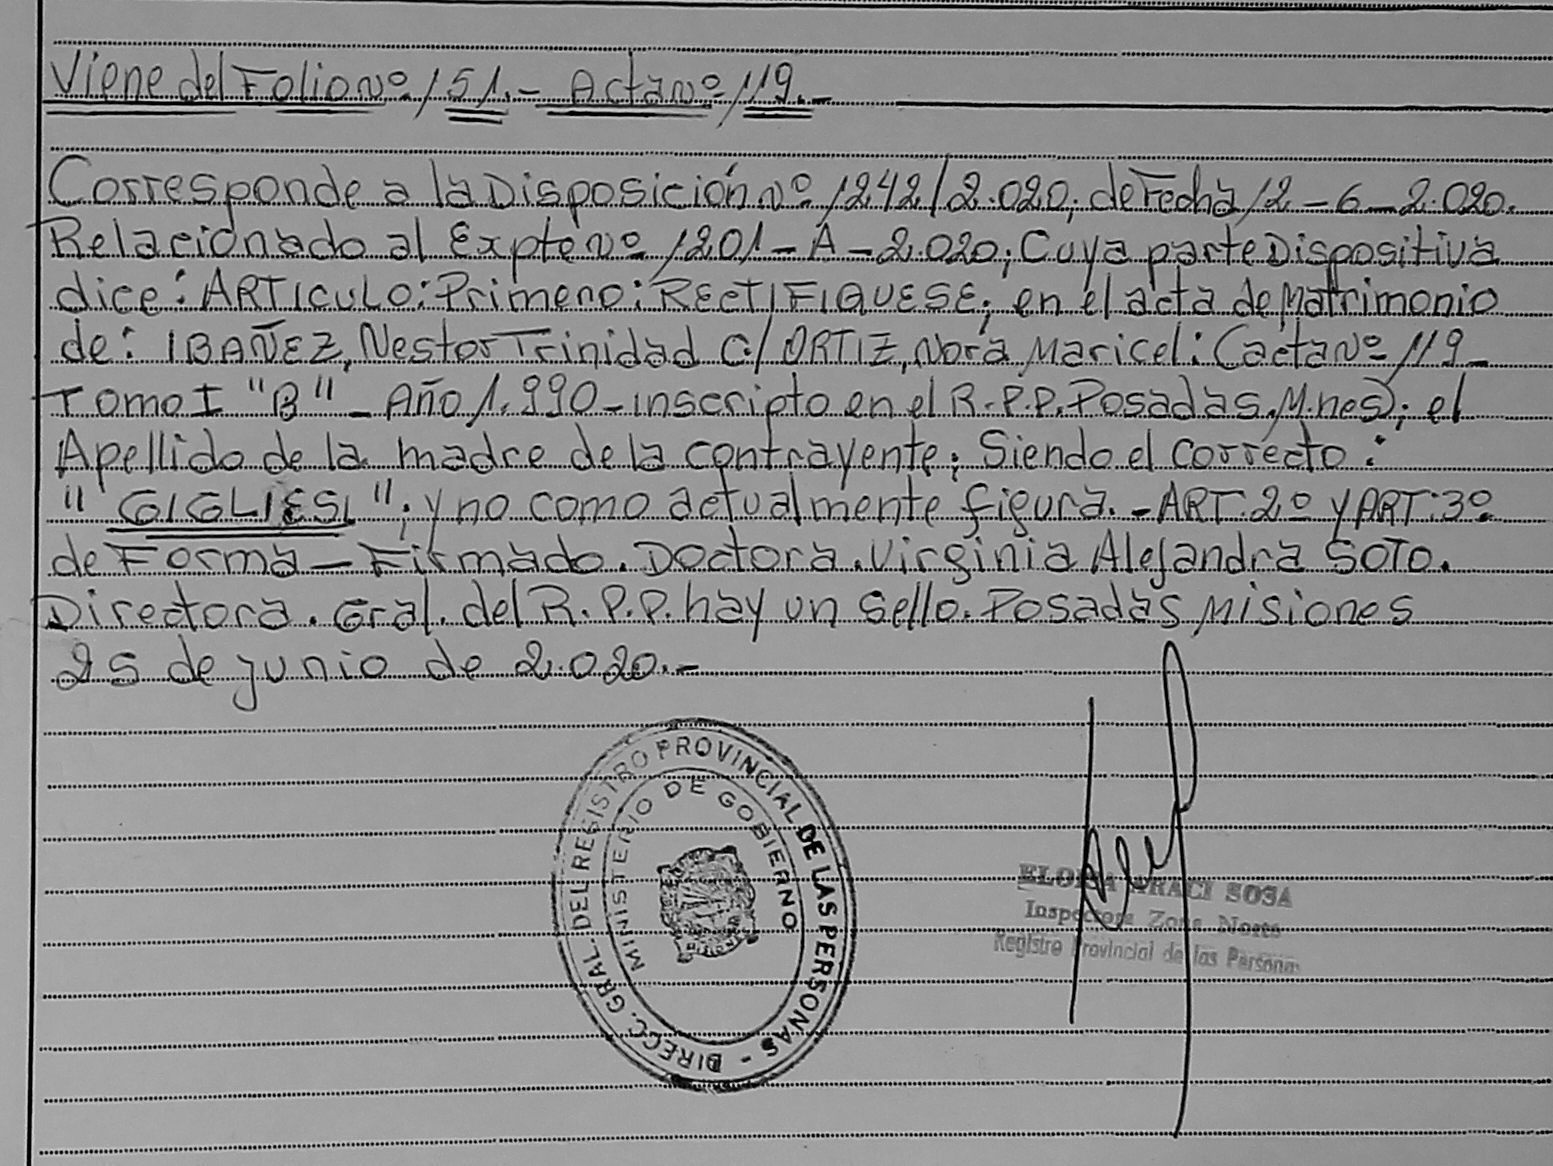 Viene del Folio nº 151.- Acta nº 119.-
Corresponde a la Disposición nº 1242/2.020, de Fecha 12-6-2.020.
Relacionado al Expte nº 1201-A-2.020; Cuya parte Dispositiva
dice: ARTICULO: Primero: RECTIFIQUESE; en el acta de Matrimonio
de: IBAÑEZ, Nestor Trinidad C/ ORTIZ, Nora Maricel: (acta nº 119-
Tomo I "B" - Año 1.990- inscripto en el R.P.P. Posadas, M.nes); el
Apellido de la madre de la contrayente; Siendo el correcto:
"GIGLIESI"; y no como actualmente figura.- ART: 2º y ART: 3º
de Forma - Firmado. Doctora. Virginia Alejandra SOTO.
Directora. Gral. del R.P.P. hay un sello. Posadas Misiones
25 de junio de 2.020.-
DIRECC. GRAL. DEL REGISTRO PROVINCIAL DE LAS PERSONAS -
MINISTERIO DE GOBIERNO
ELOISA ARACI SOSA
Inspectora Zona Norte
Registro Provincial de las Personas